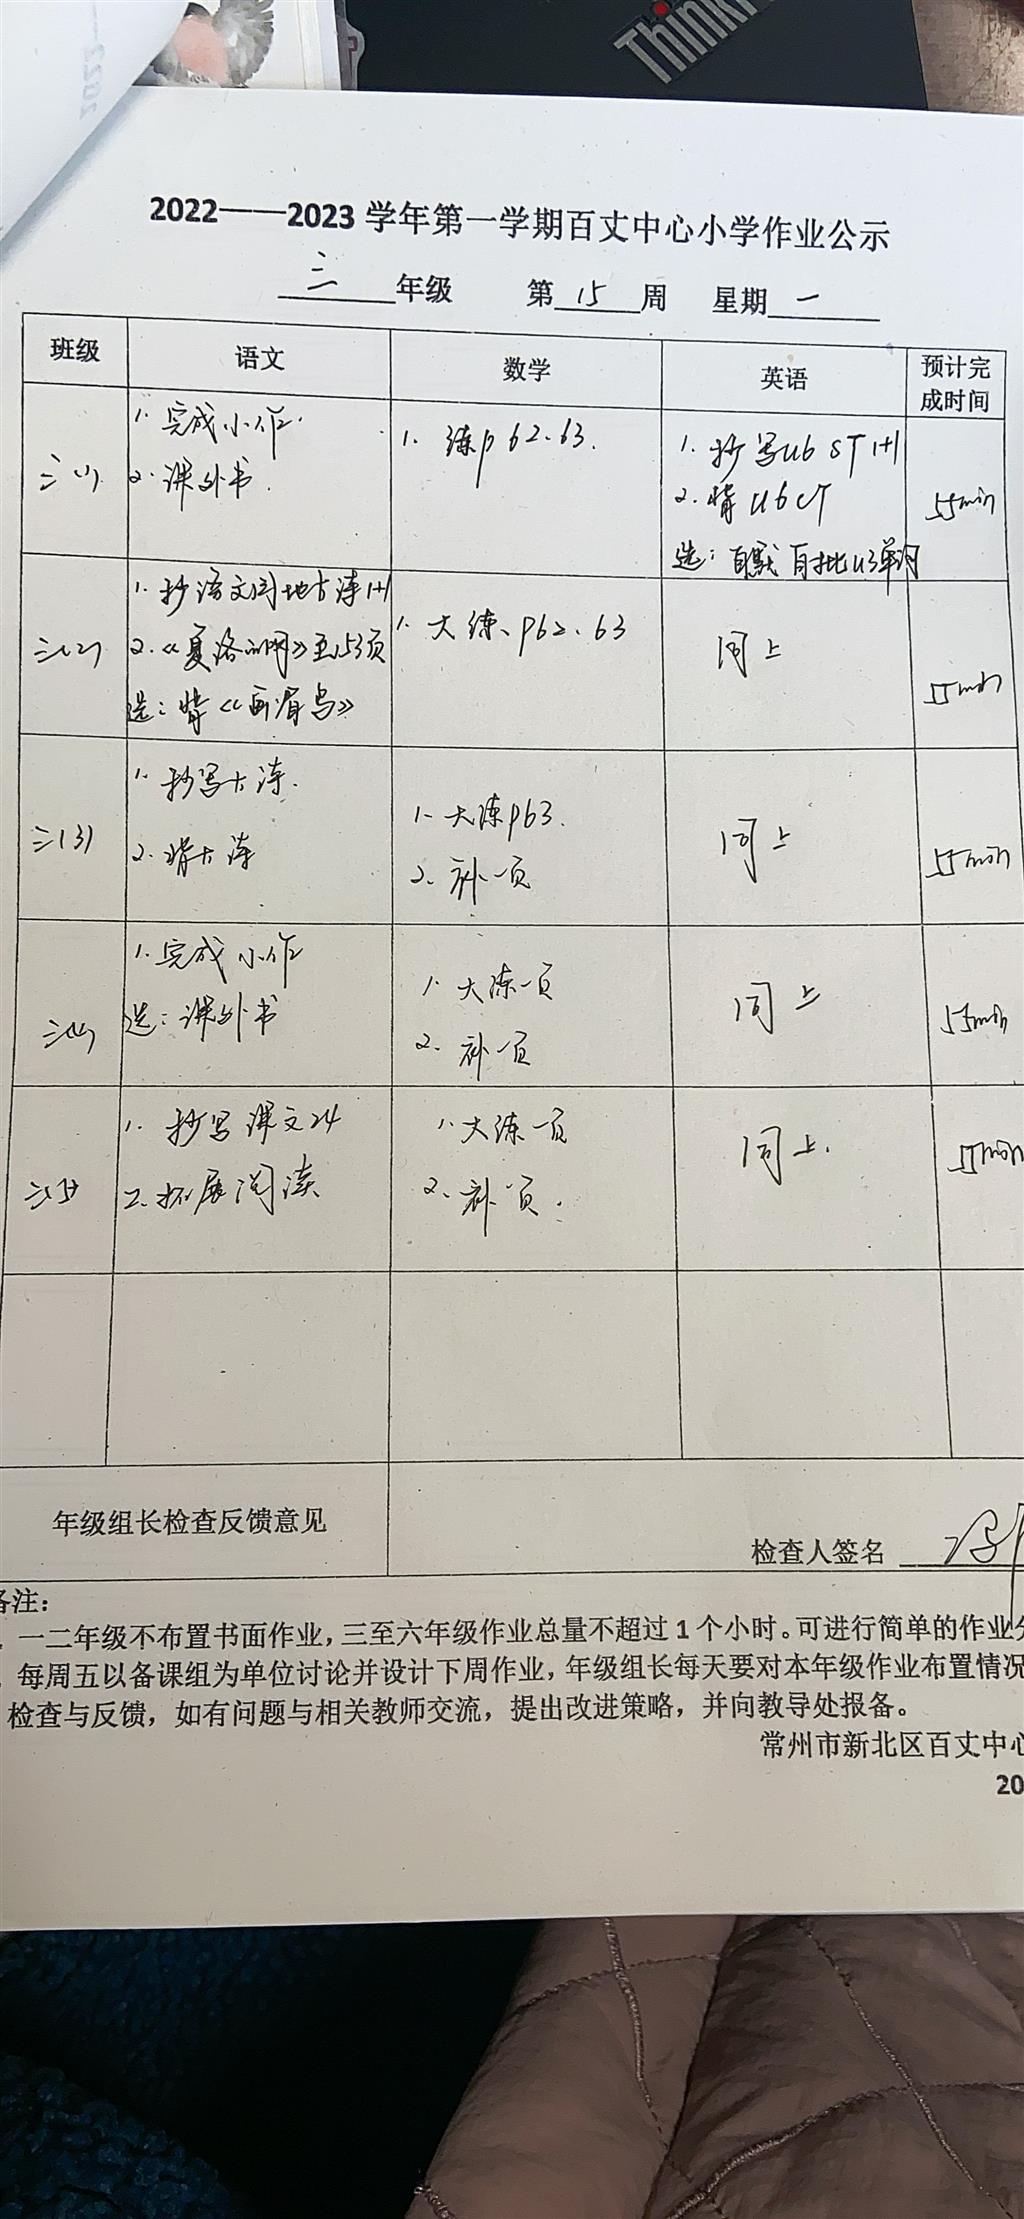 Think
2022——2023 学年第一学期百丈中心小学作业公示
三 年级 第 15 周 星期 一
班级 语文 数学 英语 预计完成时间
三(1)
1. 完成小作.
2. 课外书.
1. 练p 62.63.
1. 抄写U6 ST 1+1
2. 背U6 CT
选: 自默 自批U3单词
55min
三(2)
1. 抄语文园地古诗1+1
2.《夏洛的网》至153页
选: 背《画眉鸟》
1. 大练、p62.63
同上
55min
三(3)
1. 抄写大练.
2. 背大练
1. 大练p63.
2. 补一页
同上
55min
三(4)
1. 完成小作
选: 课外书
1. 大练一页
2. 补一页
同上
55min
三(5)
1. 抄写课文24
2. 拓展阅读
1. 大练一页
2. 补一页.
同上.
55min
年级组长检查反馈意见
检查人签名
备注:
一二年级不布置书面作业,三至六年级作业总量不超过 1 个小时。可进行简单的作业分
每周五以备课组为单位讨论并设计下周作业,年级组长每天要对本年级作业布置情况
检查与反馈,如有问题与相关教师交流,提出改进策略,并向教导处报备。
常州市新北区百丈中心
20